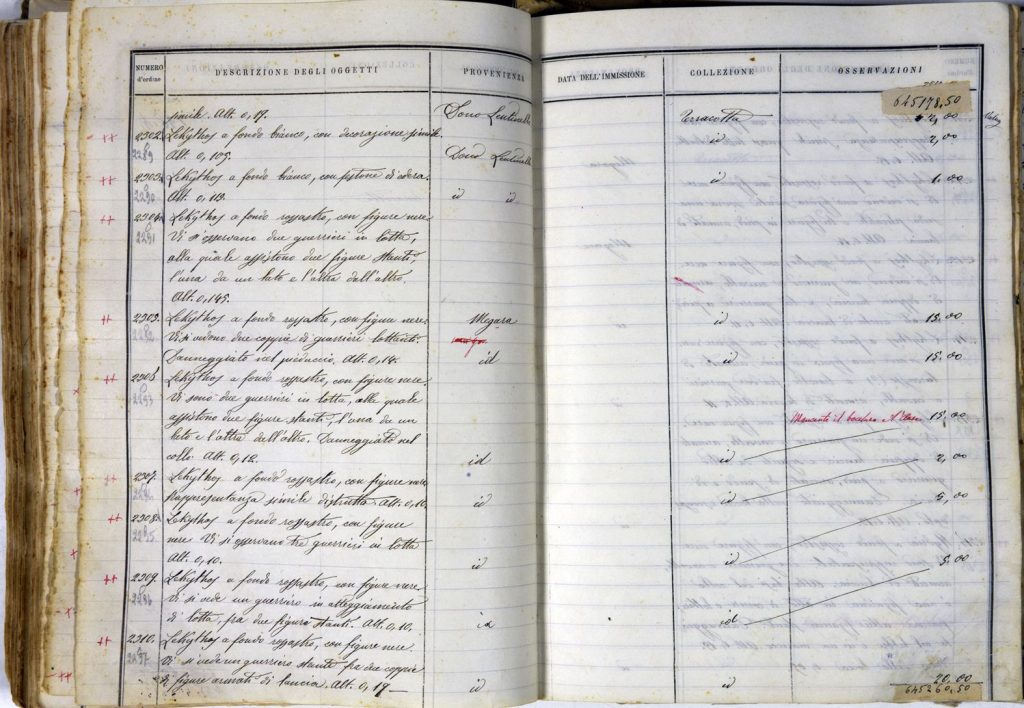 NUMERO d'ordine
DESCRIZIONE DEGLI OGGETTI
PROVENIENZA
DATA DELL'IMMISSIONE
COLLEZIONE
OSSERVAZIONI
645198,50
simile. Alt. 0,17. Dono Lentinello Terracotta 2,00
2302. Lekythos a fondo bianco, con decorazione simile. id 2,00
2289 Alt. 0,105. Dono Lentinello
2303. Lekythos a fondo bianco, con festone di edera. id 1,00
2290 Alt. 0,113. id id
2304. Lekythos a fondo rossastro, con figure nere.
2291 Vi si osservano due guerrieri in lotta,
alla quale assistono due figure stanti,
l'una da un lato e l'altra dall'altro.
Alt. 0,145.
2305. Lekythos a fondo rossastro, con figure nere. Megara id 15,00
2292 Vi si vedono due coppie di guerrieri lottanti.
Danneggiato nel pieduccio. Alt. 0,14. id id 15,00
2306. Lekythos a fondo rossastro, con figure nere.
2293 Vi sono due guerrieri in lotta, alla quale
assistono due figure stanti, l'una da un 15,00
lato e l'altra dall'altro. Danneggiato nel
collo. Alt. 0,12. id id 2,00
2307. Lekythos a fondo rossastro, con figure nere.
2294 Rappresentanza simile distrutta. Alt. 0,10. id id 5,00
2308. Lekythos a fondo rossastro, con figure
2295 nere. Vi si osservano tre guerrieri in lotta
Alt. 0,10. id id 5,00
2309. Lekythos a fondo rossastro, con figure nere.
2296 Vi si vede un guerriero in atteggiamento
di lotta, fra due figure stanti. Alt. 0,10. id id
2310. Lekythos a fondo rossastro, con figure nere.
2297 Vi si vede un guerriero stante fra due coppie
di figure armati di lancia. Alt. 0,17 id id 20,00
645260,50